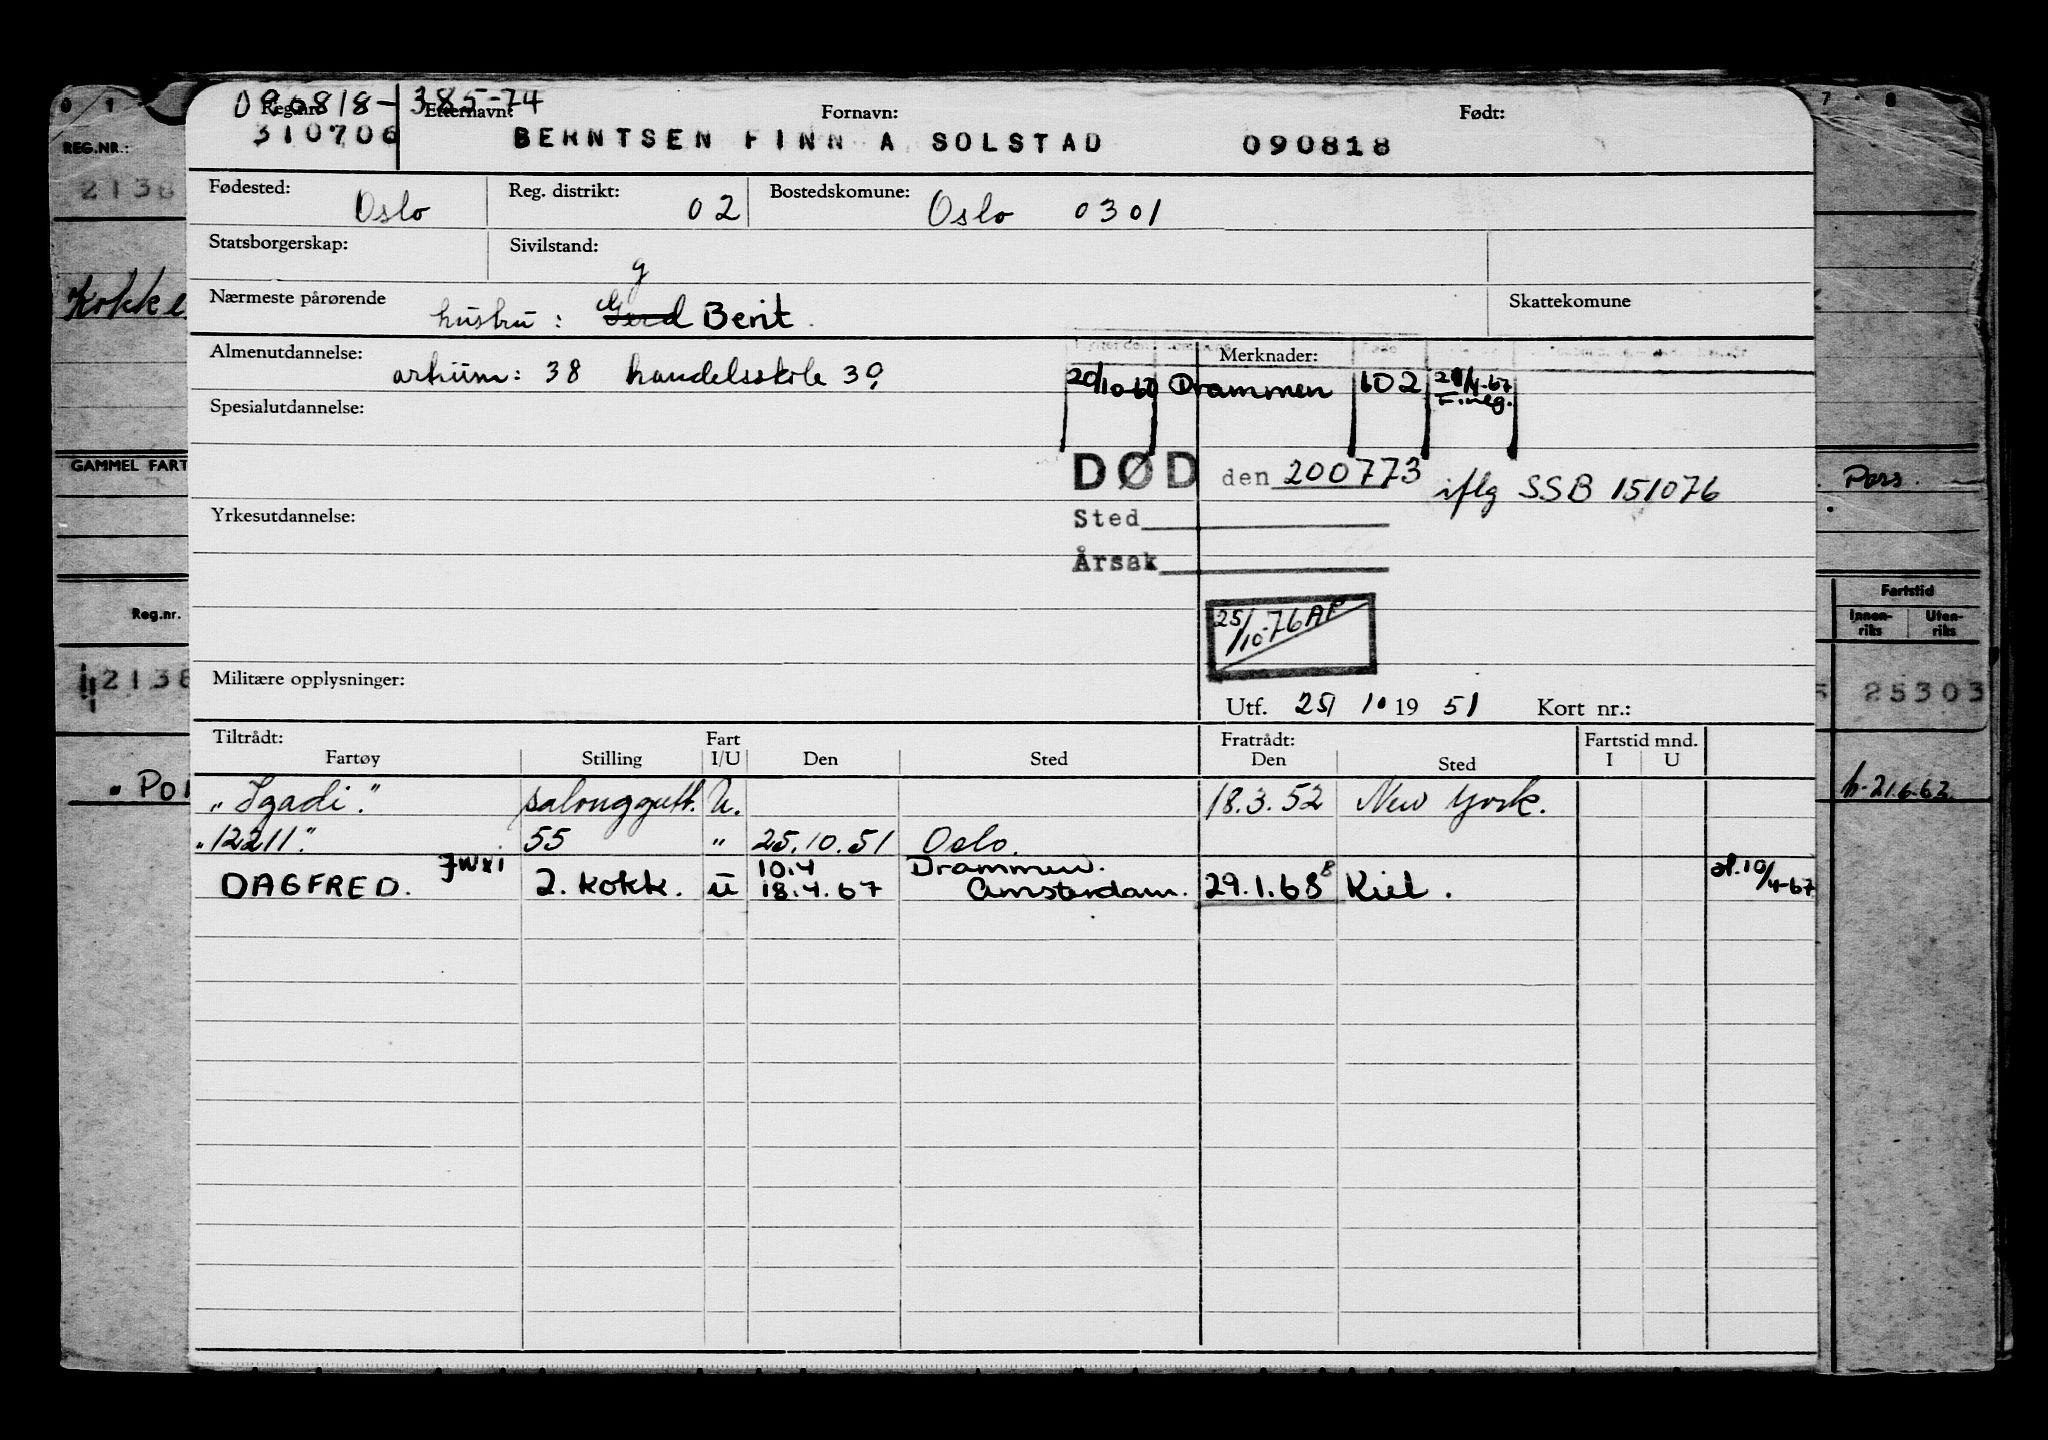 090818-38574
Reg.nr. Etternavn: Fornavn: Født:
310706 BERNTSEN FINN A SOLSTAD 090818
Fødested: Oslo Reg. distrikt: 02 Bostedskomune: Oslo 0301
Statsborgerskap: Sivilstand: g
Nærmeste pårørende hustru: Gerd Berit. Skattekomune
Almenutdannelse: artium: 38 handelsskole 39 Merknader:
20/10-67 Drammen 602
Spesialutdannelse:
DØD den 200773 iflg SSB 151076
Yrkesutdannelse: Sted
Årsak
25/10-76 AP
Militære opplysninger:
Utf. 25/ 10 19 51 Kort nr.:
Tiltrådt: Fart Fratrådt: Fartstid mnd.
Fartøy Stilling I/U Den Sted Den Sted I U
„Igadi." salonggutt. U. 18.3.52 New York.
„12211." 55 " 25.10.51 Oslo.
DAGFRED. JWXI 2. kokk. U 10.4 Drammen.
18.4.67 Amsterdam. 29.1.68 Kiel. 10/4-67
0 1 7 8
REG.NR.:
2138
Kokke
GAMMEL FART
Pass.
Reg.nr.
2138
Fartstid
Innen-riks Uten-riks
25303